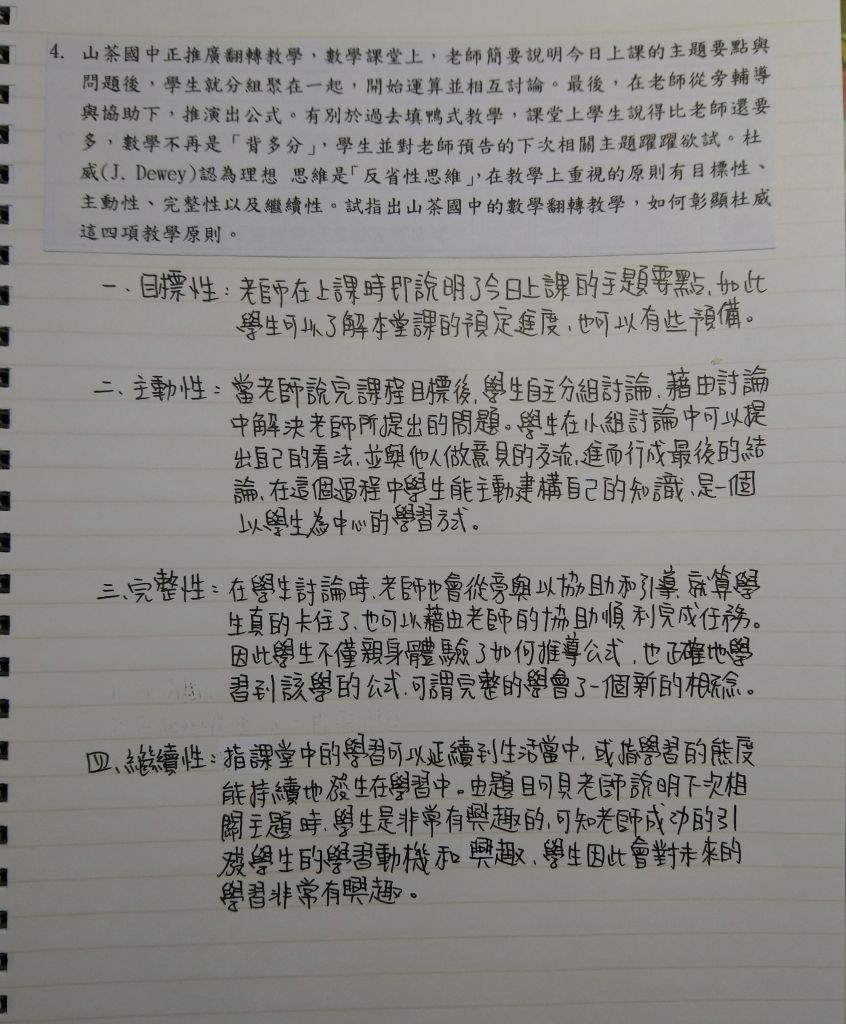 4. 山茶國中正推廣翻轉教學，數學課堂上，老師簡要說明今日上課的主題要點與
問題後，學生就分組聚在一起，開始運算並相互討論。最後，在老師從旁輔導
與協助下，推演出公式。有別於過去填鴨式教學，課堂上學生說得比老師還要
多，數學不再是「背多分」，學生並對老師預告的下次相關主題躍躍欲試。杜
威(J. Dewey)認為理想 思維是「反省性思維」，在教學上重視的原則有目標性、
主動性、完整性以及繼續性。試指出山茶國中的數學翻轉教學，如何彰顯杜威
這四項教學原則。
一、目標性：老師在上課時即說明了今日上課的主題要點，如此
學生可以了解本堂課的預定進度，也可以有些預備。
二、主動性：當老師說完課程目標後，學生自主分組討論，藉由討論
中解決老師所提出的問題。學生在小組討論中可以提
出自己的看法，並與他人做意見的交流，進而行成最後的結
論，在這個過程中學生能主動建構自己的知識，是一個
以學生為中心的學習方式。
三、完整性：在學生討論時，老師也會從旁與以協助和引導，就算學
生真的卡住了，也可以藉由老師的協助順利完成任務。
因此學生不僅親身體驗了如何推導公式，也正確地學
習到該學的公式，可謂完整的學會了一個新的概念。
四、繼續性：指課堂中的學習可以延續到生活當中，或指學習的態度
能持續地發生在學習中。由題目可見老師說明下次相
關主題時，學生是非常有興趣的，可知老師成功的引
發學生的學習動機和興趣，學生因此會對未來的
學習非常有興趣。